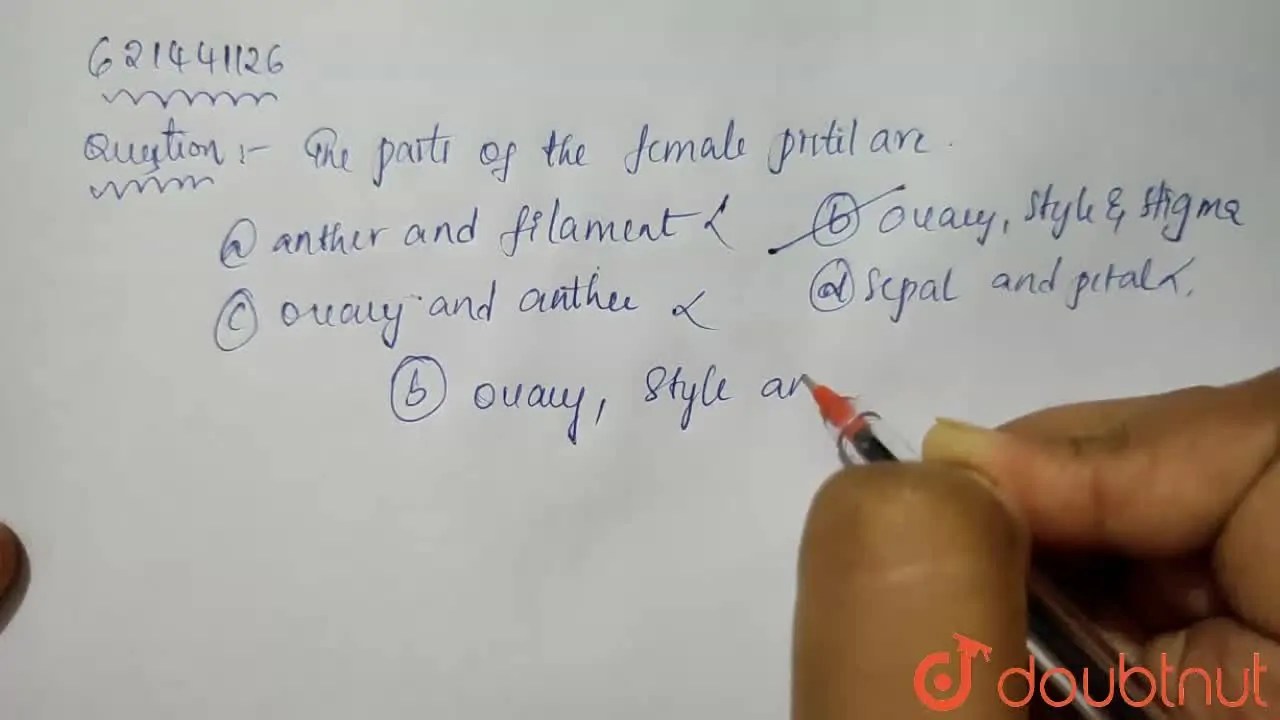 621441126
Question :- The parts of the female pistil are.
(a) anther and filament (b) ovary, style & stigma
(c) ovary and anther (d) sepal and petal
(b) ovary, style an
doubtnut